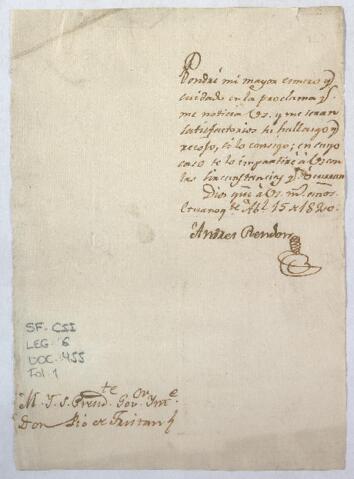 Pondré mi mayor esmero y
cuidado en la proclama q.e
me noticia Us. y me seran
satisfactorios su hallazgo y
recojo, si lo consigo; en cuyo
caso se lo impartiré á Us. con
las circunstancias q.
Dios gue. á Us. m.s años.
Ab.l 15 de 1820.
Andres Rendon
SF-CSI
LEG. 6
DOC. 455
Fol. 1
M. I. S. Presid.te Gov.or Int.e
Don Pio de Tristan